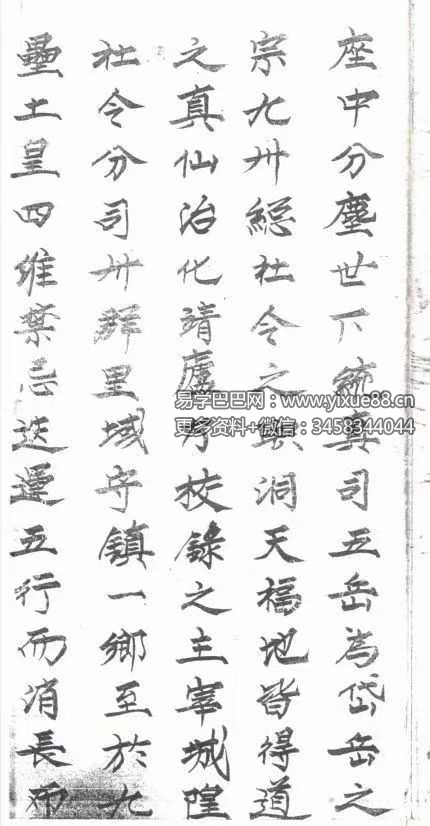 座中分塵世下統真司五岳為岱岳之
宗九州總社令之 洞天福地皆得道
之真仙治化靖廬 校錄之主宰城隍
社令分司州 里域守鎮一鄉至於九
壘土皇四維禁忌迭運五行而消長
易学巴巴网：www.yixue88.cn
更多资料+微信：3458344044